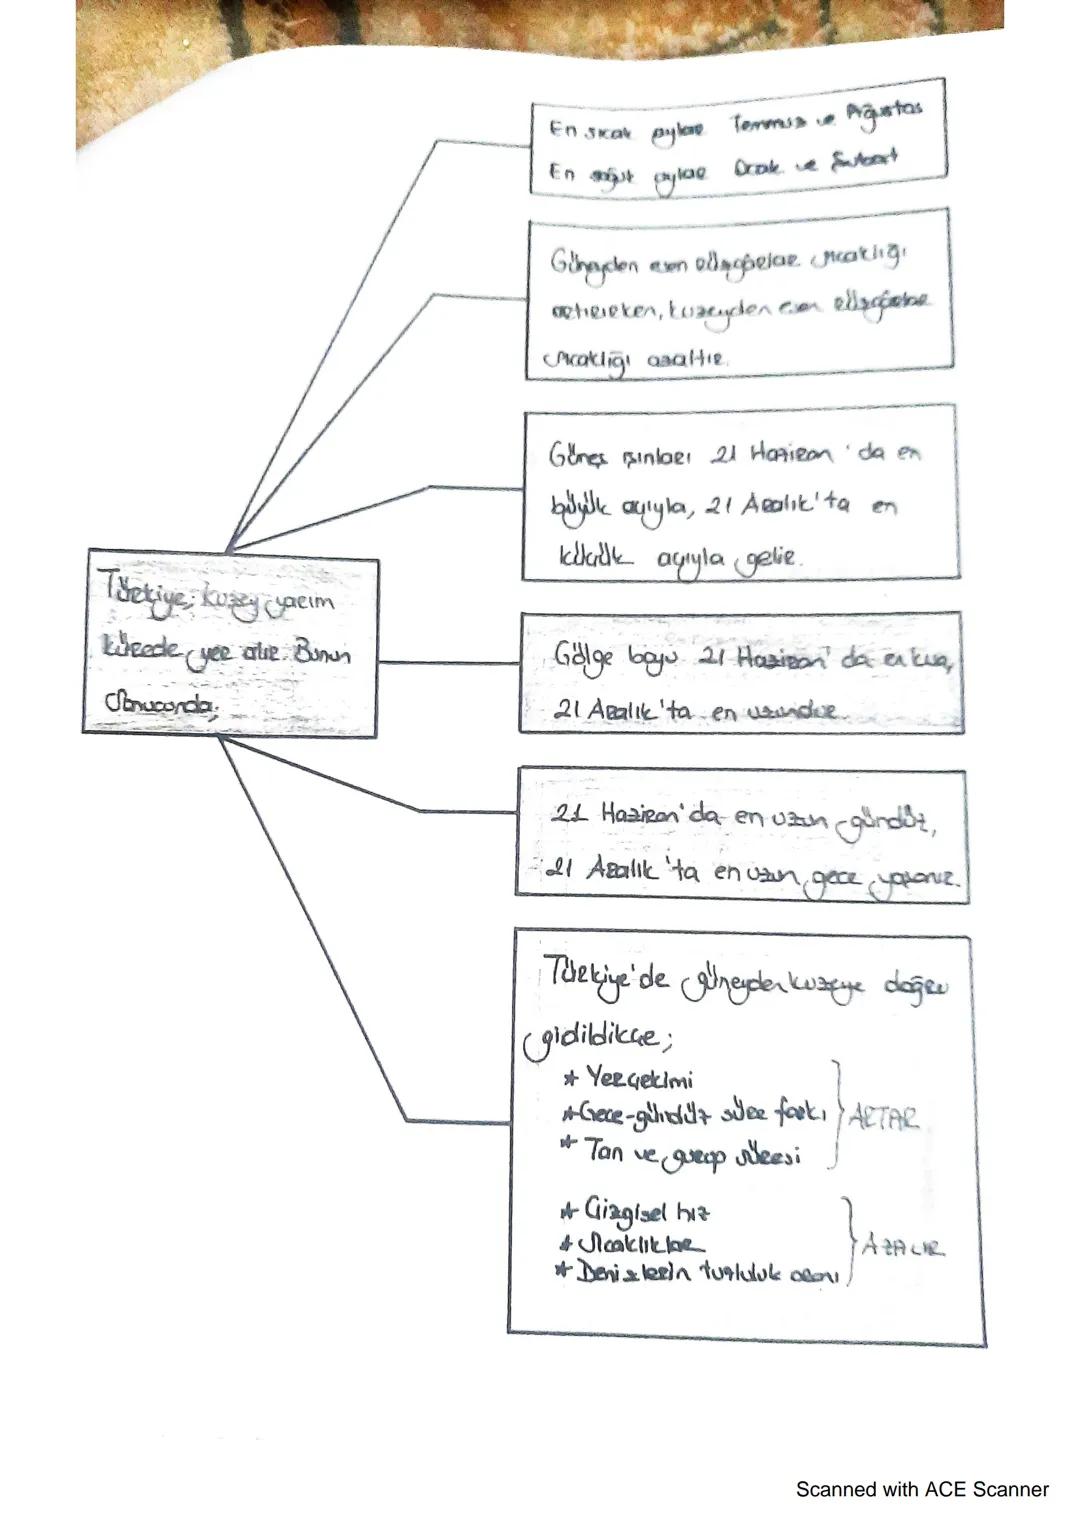 En sıcak aylar Temmuz ve Ağustos
En soğuk aylar Ocak ve Şubat
Güneyden esen rüzgarlar sıcaklığı
artırırken, kuzeyden esen rüzgarlar
sıcaklığı azaltır.
Güneş ışınları 21 Haziran'da en
büyük açıyla, 21 Aralık'ta en
küçük açıyla gelir.
Türkiye; kuzey yarım
kürede yer alır. Bunun
Sonucunda;
Gölge boyu 21 Haziran'da en kısa,
21 Aralık'ta en uzundur.
21 Haziran'da en uzun gündüz,
21 Aralık'ta en uzun gece yaşanır.
Türkiye'de güneyden kuzeye doğru
gidildikçe;
* Yerçekimi
* Gece-gündüz süre farkı
ARTAR
* Tan ve gurup süresi
* Çizgisel hız
* Sıcaklıklar
AZALIR
* Denizlerin tuzluluk oranı
Scanned with ACE Scanner